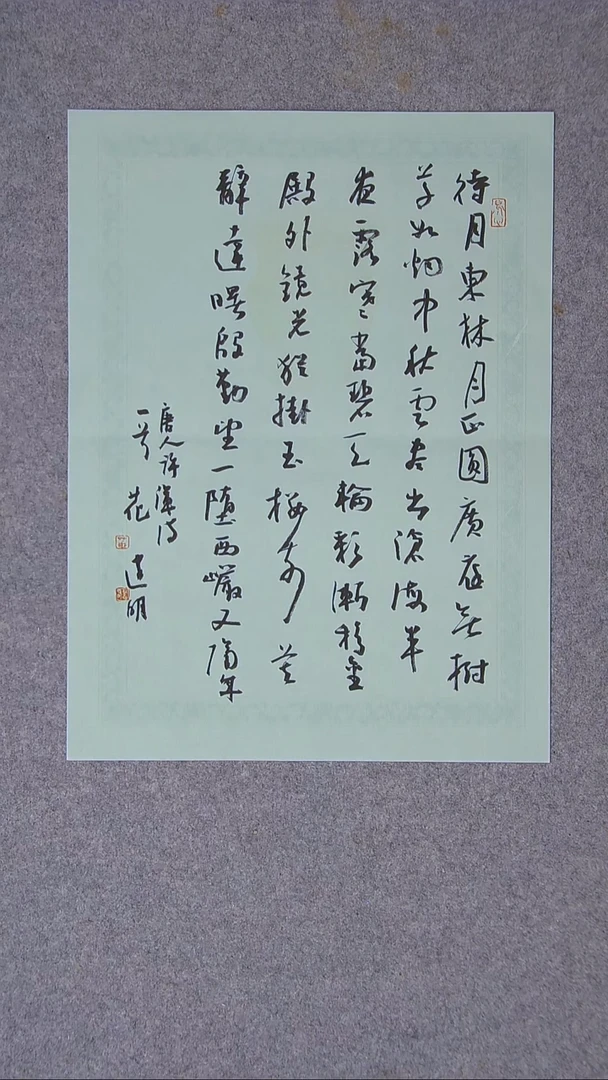 待月東林月正圓廣庭無樹
草如烟中秋雲尽出滄海半
夜露寒當碧天輪彩漸移金
殿外鏡光猶掛玉樓前莫
辭達曙殷勤望一墮西巖又隔年
唐人許渾詩
一 花 明